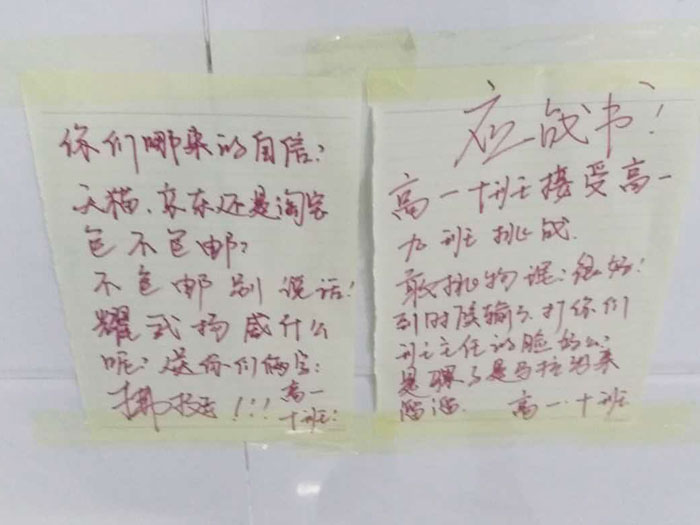 你们哪来的自信?
天猫、京东还是淘宝
包不包邮?
不包邮别说话!
耀武扬威什么
呢?送你们俩字:
高一
十班:
应战书!
高一十班接受高一
九班挑战.
敢挑物理?很好!
到时候输了,打你们
班主任的脸
是骡子是马拉出来
遛遛. 高一·十班